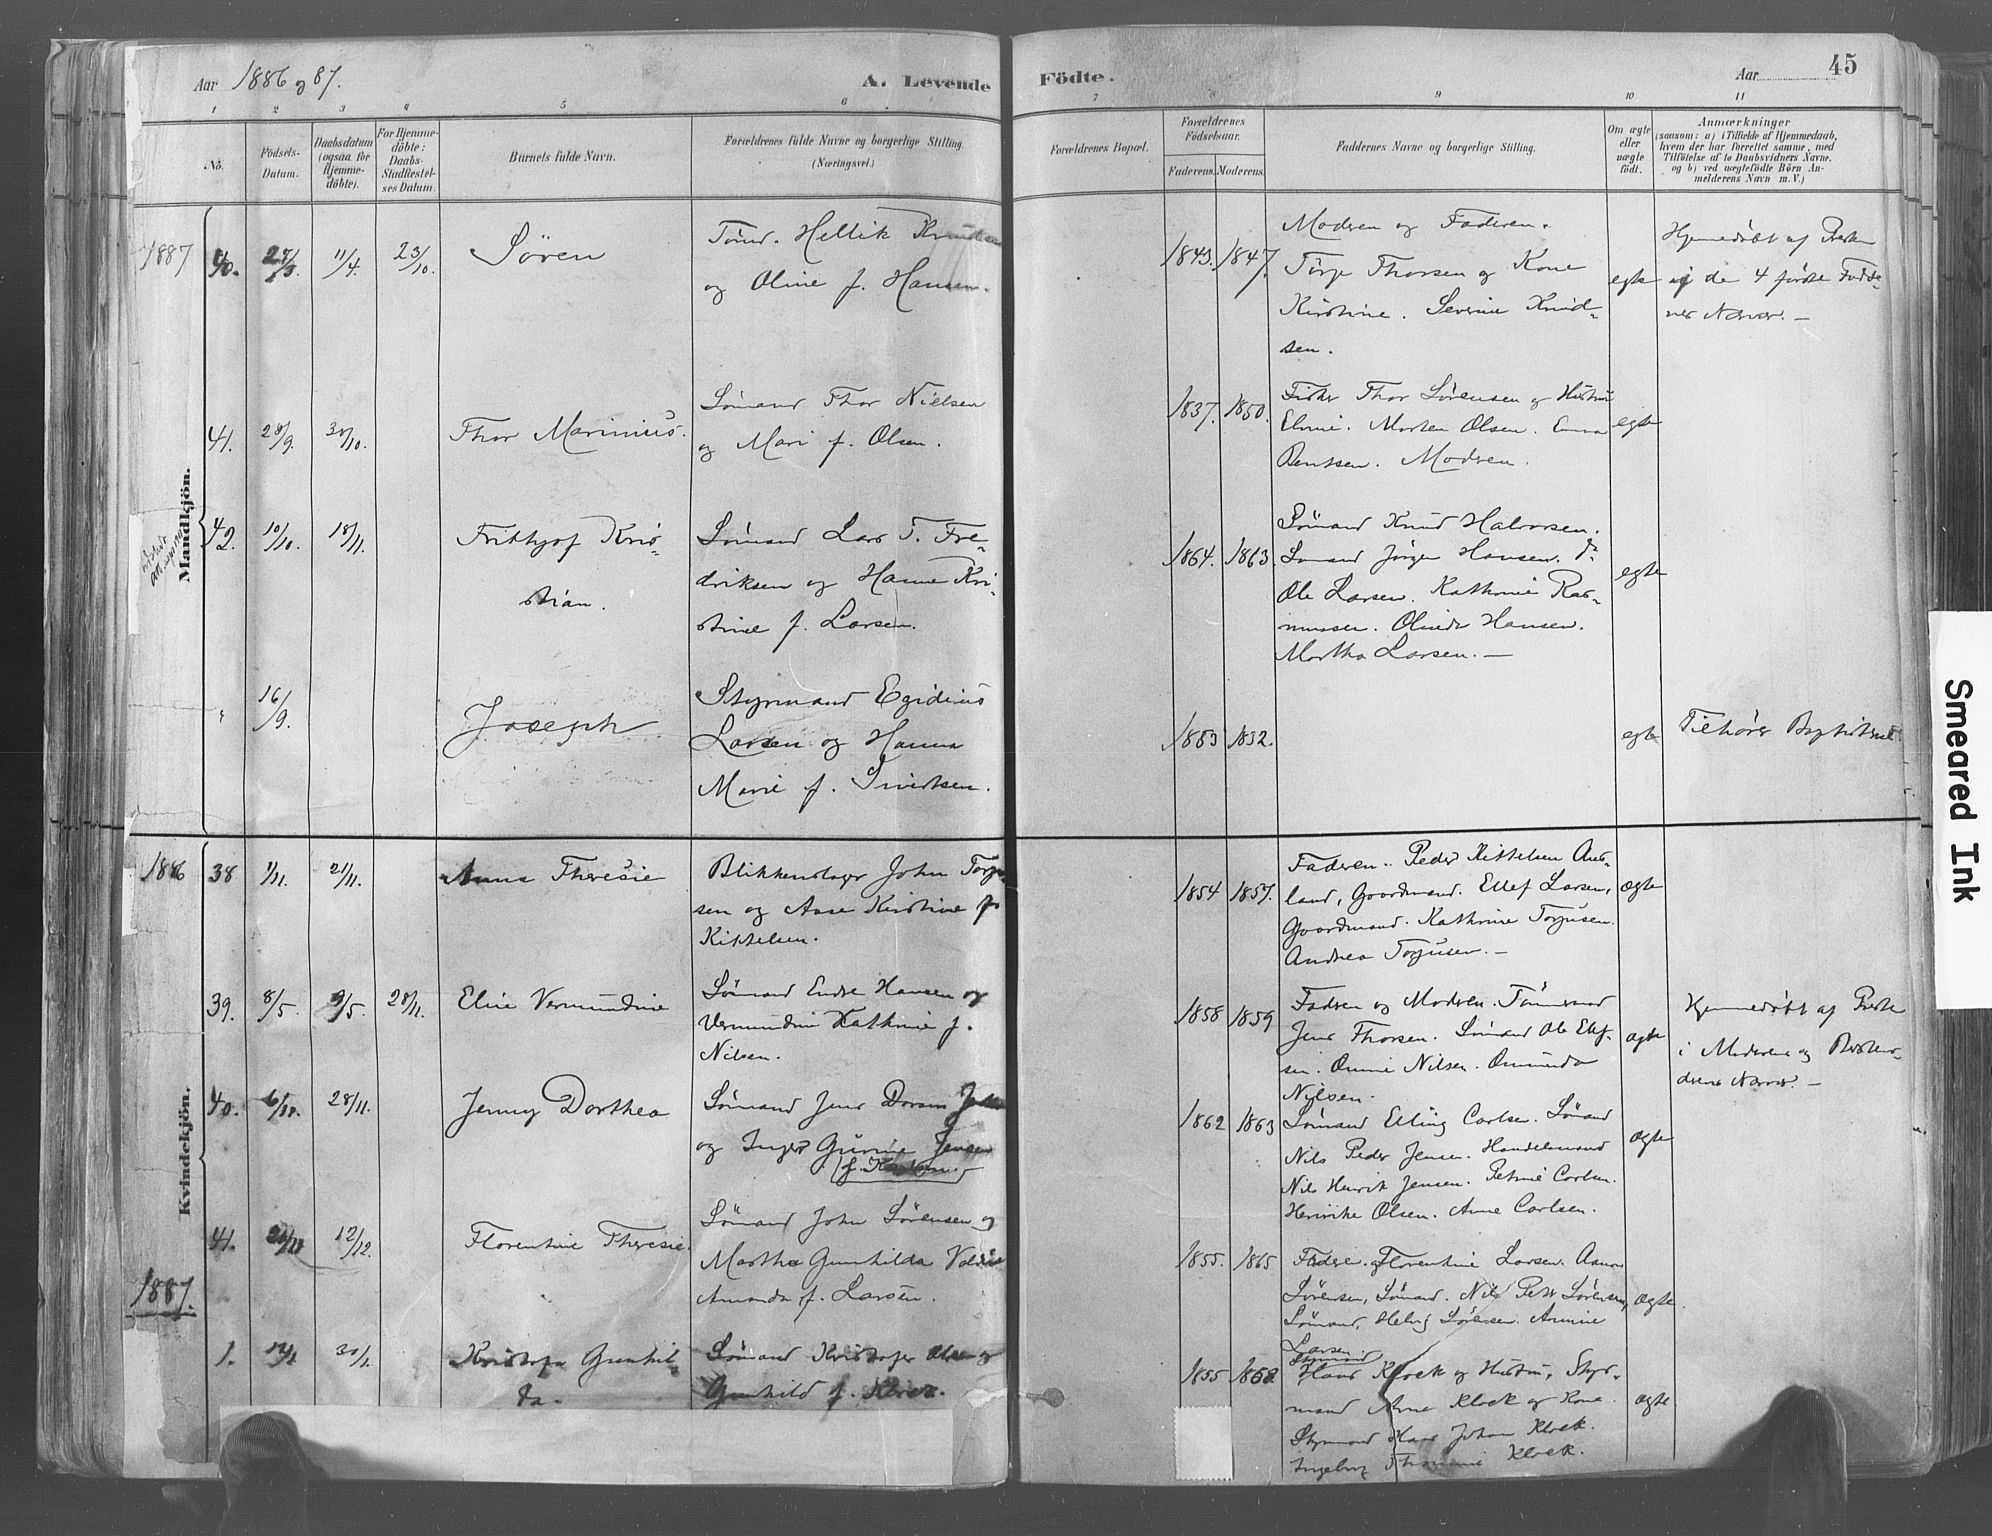 Aar 1886 og 87.
A. Levende
Födte.
Aar
45
1
2
3
4
5
6
7
8
9
10
11
No.
Födsels-
Datum.
Daabsdatum
(ogsaa for
Hjemme-
döbte).
For Hjemme-
döbte:
Daabs-
Stadfæstel-
ses Datum.
Barnets fulde Navn.
Forældrenes fulde Navne og borgerlige Stilling.
(Næringsvei.)
Forældrenes Bopæl.
Forældrenes
Födselsaar.
Faderens.
Moderens.
Faddernes Navne og borgerlige Stilling.
Om ægte
eller
uægte
födt.
Anmærkninger
(saasom: a) i Tilfælde af Hjemmedaab,
hvem der har forrettet samme, med
Tilföielse af to Daabsvidners Navne.
og b) ved uægtefödte Börn An-
melderens Navn m. V.)
Mandkjön.
1887
40.
11/4.
23/10.
Sören
Tömd. Hellik Knudsen
og Oline f. Hansen.
1843. 1847.
Modren og Faderen.
Törje Thorsen og Kone
Kirstine. Severine Knud-
sen.
egte
Hjemmedöbt af Presten
i de 4 förste Fadde-
res Nærvær. —
41.
28/9.
30/10.
Thor Marinius.
Sömand Thor Nielsen
og Mari f. Olsen.
1837. 1850.
Fisker Thor Sörensen og Hustru
Elvine. Morten Olsen. Emma
Bentsen. Modren.
egte
42.
10/10.
18/11.
Frithjof Kris-
stian.
Sömand Lars T. Fre-
driksen og Hanne Kri-
stine f. Larsen.
1864. 1863.
Sömand Knud Halvorsen.
Sömand Jörgen Hansen. do
Ole Larsen. Kathrine Ras-
mussen. Olinde Hansen.
Martha Larsen. —
egte
"
16/9.
Joseph
Styrmand Egidius
Larsen og Hanna
Marie f. Sivertsen.
1853 1852.
egte
Tilhörer Baptisterne.
Kvindekjön.
1886
38
1/11.
21/11.
Anna Theresie
Blikkenslager John Torju-
sen og Aase Kirstine f.
Kittelsen.
1854 1857.
Faderen. Peder Kittelsen Aus-
land, Gaardmand. Ellef Larsen,
Gaardmand. Kathrine Torjusen.
Andrea Torjusen. —
ægte
39.
8/5.
9/5.
28/11.
Eline Vermundine
Sömand Endre Hansen og
Vermundine Kathrine f.
Nilsen.
1858 1859
Fadren og Modren. Tömmermand
Jens Thorsen. Sömand Ole Ellef-
sen. Omine Nilsen. Osmunda
Nilsen.
ægte
Hjemmedöbt af Presten
i Moderens og Bestemo-
derens Nærvær. —
40.
28/11.
Jenny Dorthea
Sömand Jens
og Inger Gurine Jensen
1862 1863
Sömand Elling Carlsen. Sömand
Nils Peder Jensen. Handelsmand
Nils Henrik Jensen. Petrine Carlsen.
Henrikke Olsen. Anne Carlsen.
ægte
41.
12/12.
Florentine Theresie.
Sömand John Sörensen og
Martha Gunhilda
Amanda f. Larsen.
1855. 1865
Fadren. Florentine Larsen.
Sörensen, Sömand. Nils Petter Sörensen,
Sömand, Helvig Sörensen.
Larsen
ægte.
1887.
1.
30/1.
Kristofa Gunhil
da.
Sömand Kristofer Olsen og
Gunhild f. Klock.
1855 1858.
Styrmand
Hans Klock og Hustru, Styr-
mand Arne Klock og Kone.
Styrmand Hans Johan Klock.
Ingeborg Thomine Klock.
ægte
Smeared Ink